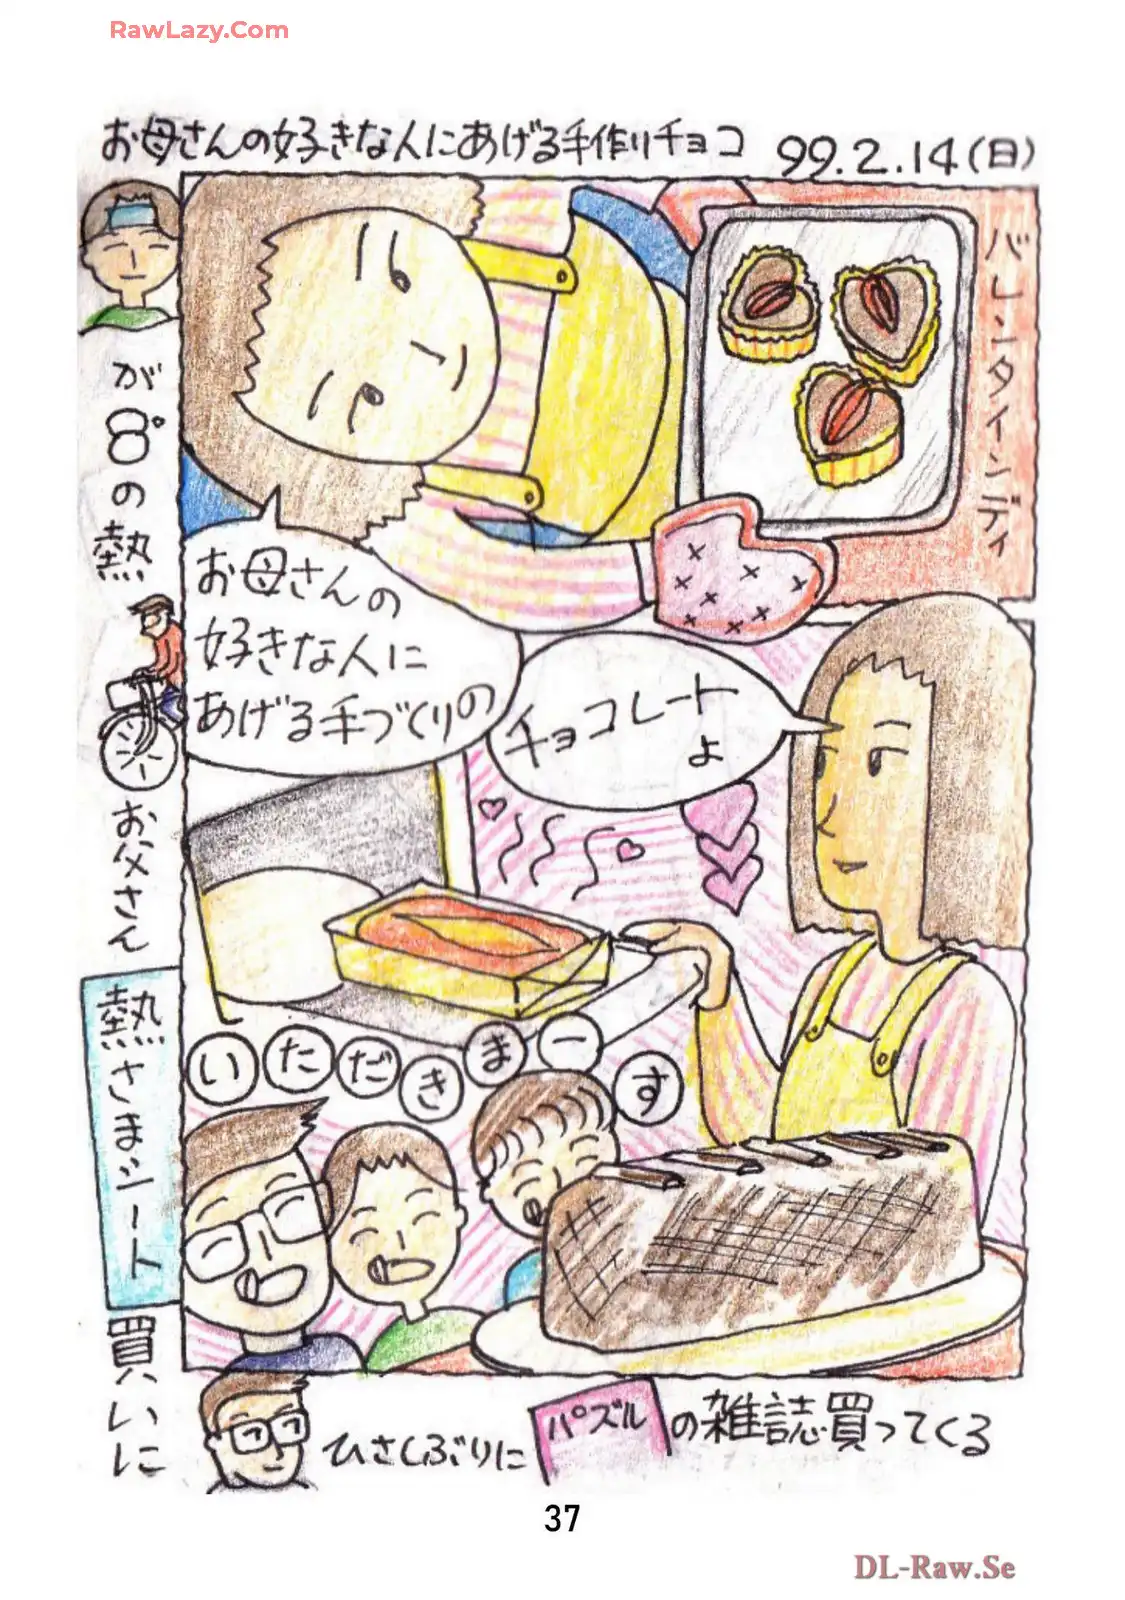 RawLazy.Com
お母さんの好きな人にあげる手作りチョコ 99.2.14(日)
バレンタインディ
お母さんの
好きな人に
あげる手づくりの
チョコレート
よ
いただきまーす
が8°の熱
シー
お父さん
熱さまシート
買いに
ひさしぶりに
パズル
の雑誌買ってくる
37
DL-Raw.Se